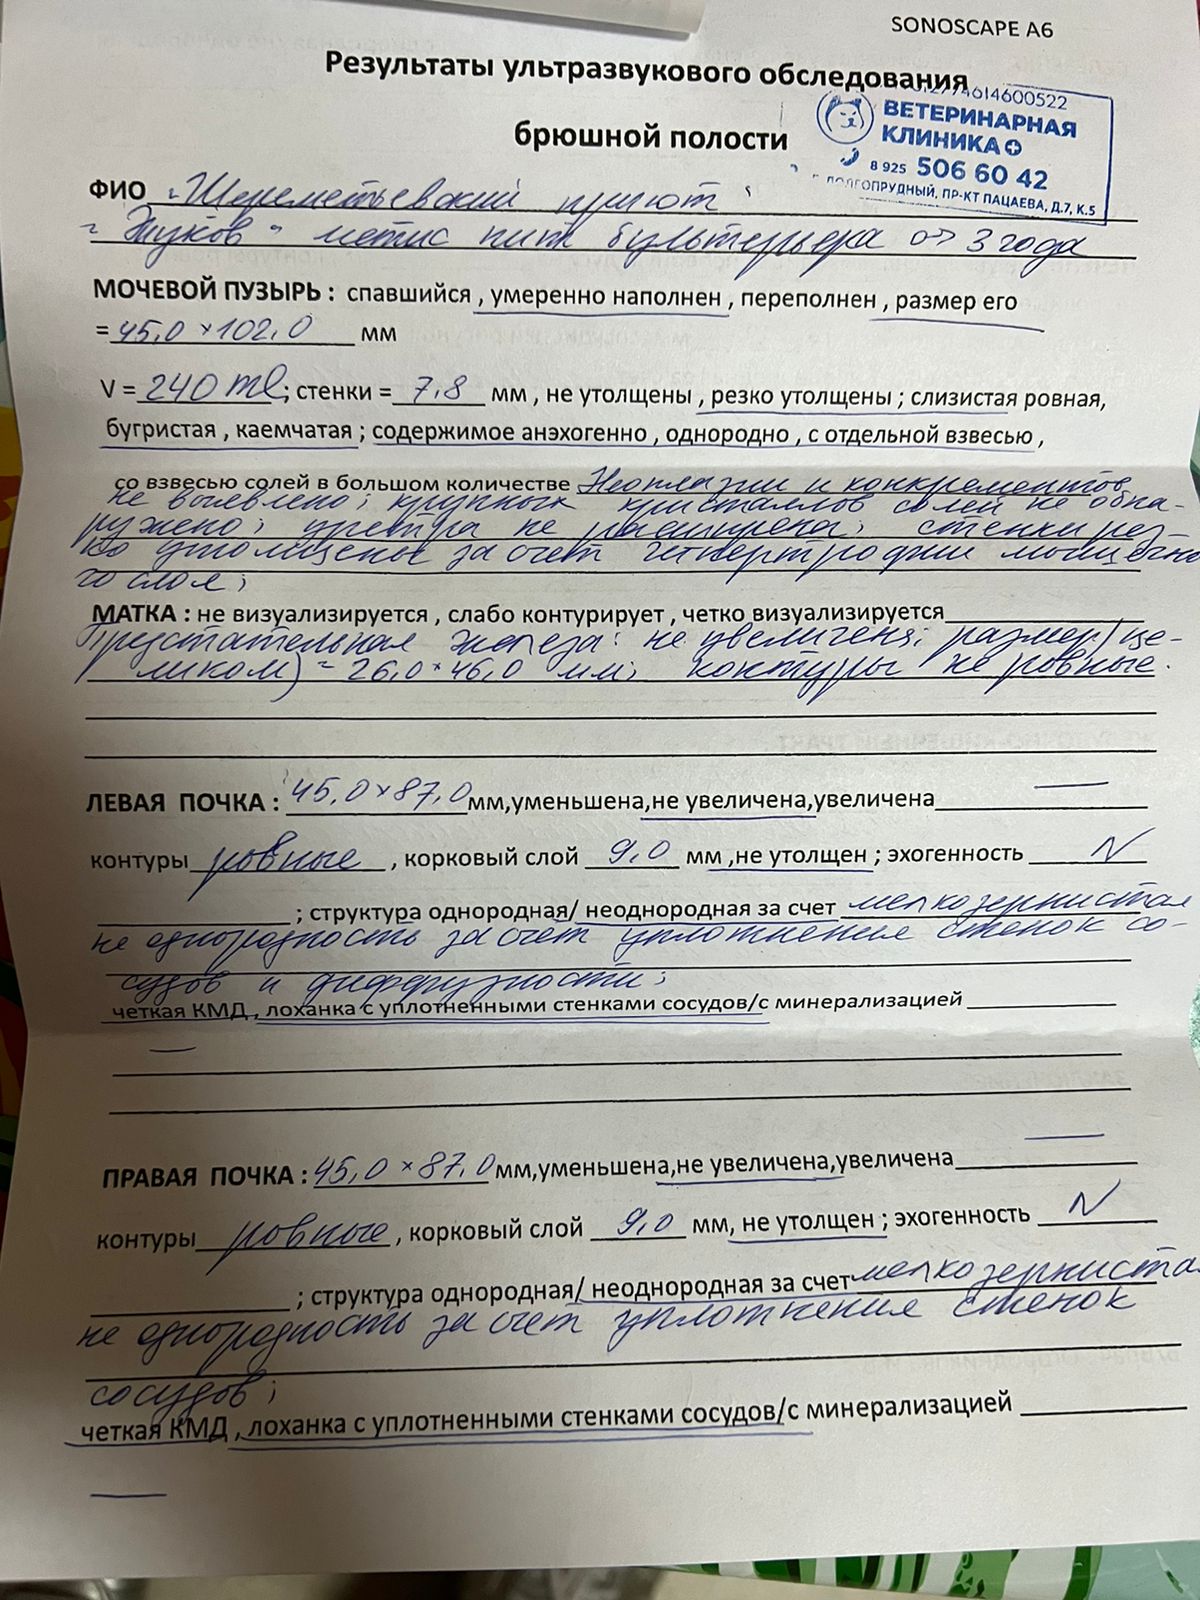 SONOSCAPE A6
Результаты ультразвукового обследования
брюшной полости
4614600522
ВЕТЕРИНАРНАЯ
КЛИНИКА
8 925 506 60 42
ДОЛГОПРУДНЫЙ, ПР-КТ ПАЦАЕВА, Д.7, К.5
ФИО "Шереметьевский приют"
"Жуков" метис пит бультерьера от 3 года
МОЧЕВОЙ ПУЗЫРЬ : спавшийся , умеренно наполнен , переполнен , размер его
= 45,0 × 102,0 мм
V = 240 ml ; стенки = 7,8 мм , не утолщены , резко утолщены ; слизистая ровная,
бугристая , каемчатая ; содержимое анэхогенно , однородно , с отдельной взвесью ,
со взвесью солей в большом количестве Неоплазии и конкрементов
не выявлено; крупных кристаллов солей не обна-
ружено; уретра не расширена; стенки рез-
ко утолщены за счет гипертрофии мышечно
го слоя;
МАТКА : не визуализируется , слабо контурирует , четко визуализируется
Предстательная железа: не увеличена; размер (це-
ликом) = 26,0 × 46,0 мм; контуры не ровные.
ЛЕВАЯ ПОЧКА : 45,0 × 87,0 мм,уменьшена,не увеличена,увеличена —
контуры ровные , корковый слой 9,0 мм ,не утолщен ; эхогенность N
; структура однородная/ неоднородная за счет мелкозернистая
не однородность за счет уплотнения стенок со-
судов и диффузности;
четкая КМД , лоханка с уплотненными стенками сосудов/с минерализацией
—
ПРАВАЯ ПОЧКА : 45,0 × 87,0 мм,уменьшена,не увеличена,увеличена —
контуры ровные , корковый слой 9,0 мм, не утолщен ; эхогенность N
; структура однородная/ неоднородная за счет мелкозерниста
не однородность за счет уплотнения стенок
сосудов;
четкая КМД , лоханка с уплотненными стенками сосудов/с минерализацией
—